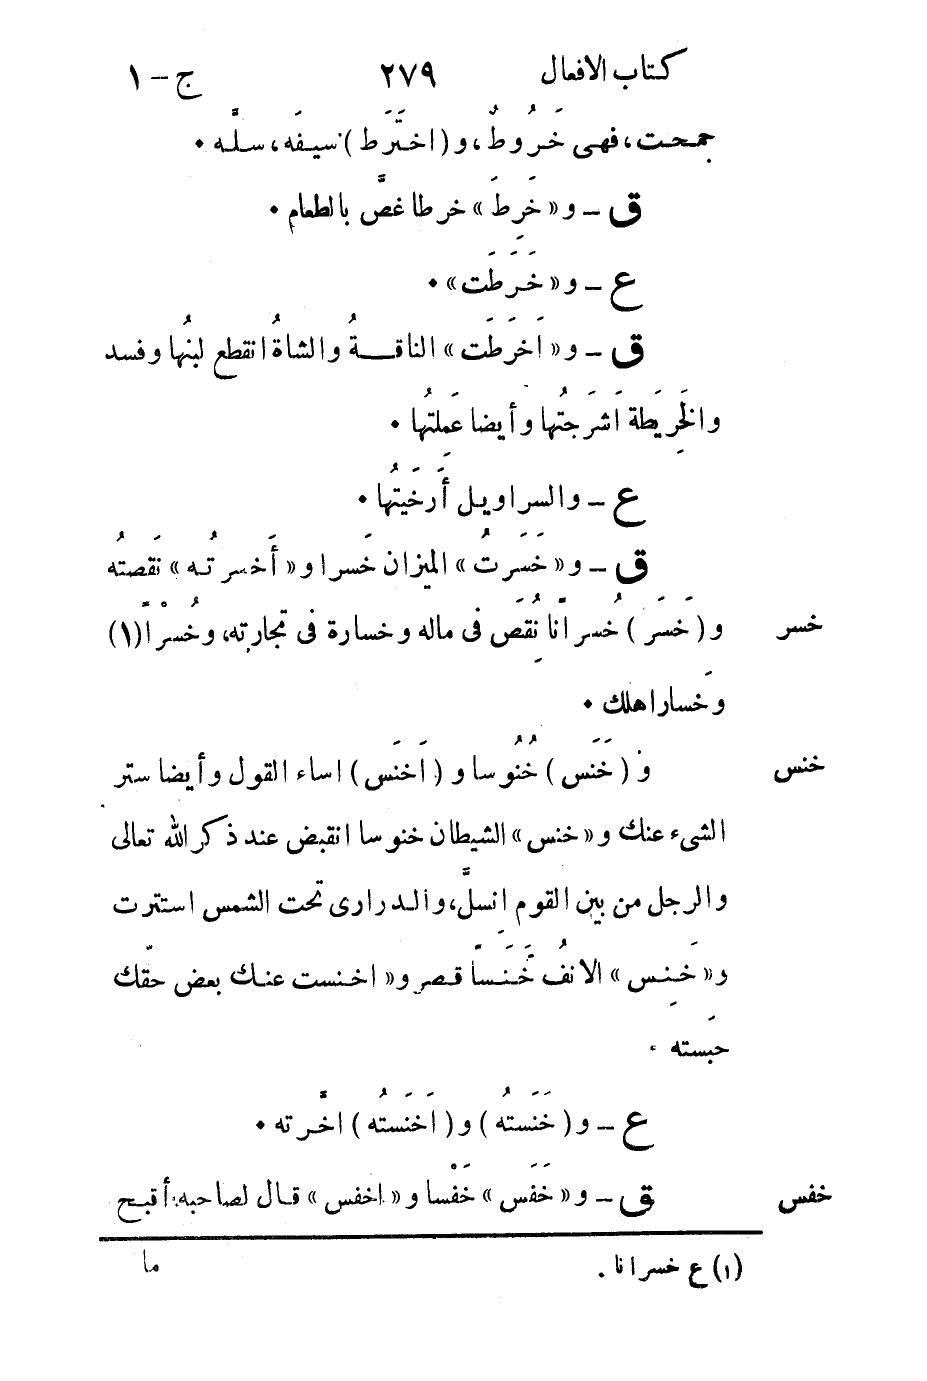 كتاب الافعال ٢٧٩ ج – ١
جمحت، فهى خَرُوطٌ، و (اختَرَط) سيفَه، سلَّه ٠
ق – و « خَرِطَ » خرطا غصَّ بالطعام ٠
ع – و « خَرَطَت » ٠
ق – و « اَخرَطَت » الناقــةُ والشاةُ انقطع لبنُها وفسد
والخَرِيَطة اَشرَجتُها وأيضا عَمِلتُها ٠
ع – والسراويل أَرخَيتُها ٠
ق – و « خَسَرتُ » الميزان خَسرا و « أَخسرتُه » نَقَصتُه
خسر و ( خَسَر ) خُسرانًا نُقِصَ فى ماله وخسارة فى تجارتِه، وخُسْرًا (١)
وخَسارا هلك ٠
خنس و ( خَنَس ) خُنُوسا و ( اَخنَس ) اساء القول وأيضا ستر
الشىء عنك و « خنس » الشيطان خنوسا انقبض عند ذكر الله تعالى
والرجل من بين القوم اِنسلَّ، والدرارى تحت الشمس استترت
و « خَنِس » الانفُ خَنَسًا قصر و « اخنست عنك بعض حقّك
حبَسته ٠
ع – و ( خَنَستُه ) و ( اَخنَستُه ) اخَّرته ٠
خفس ق – و « خَفَس » خَفْسا و « اخفس » قال لصاحبه: أقبح
(١) ع خسرانا . ما